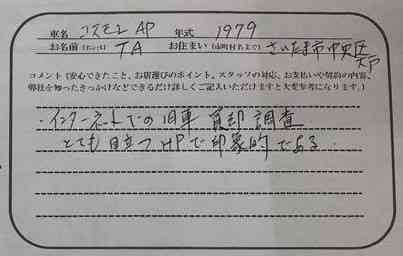 車名 コスモL AP 年式 1979
お名前(イニシャル) TA お住まい(市町村名まで) さいたま市中央区
コメント(安心できたこと、お店選びのポイント、スタッフの対応、お支払いや契約の内容、
弊社を知ったきっかけなどできるだけ詳しくご記入いただけますと大変参考になります。)
・インターネットでの旧車買却調査
とても目立つHPで印象的である